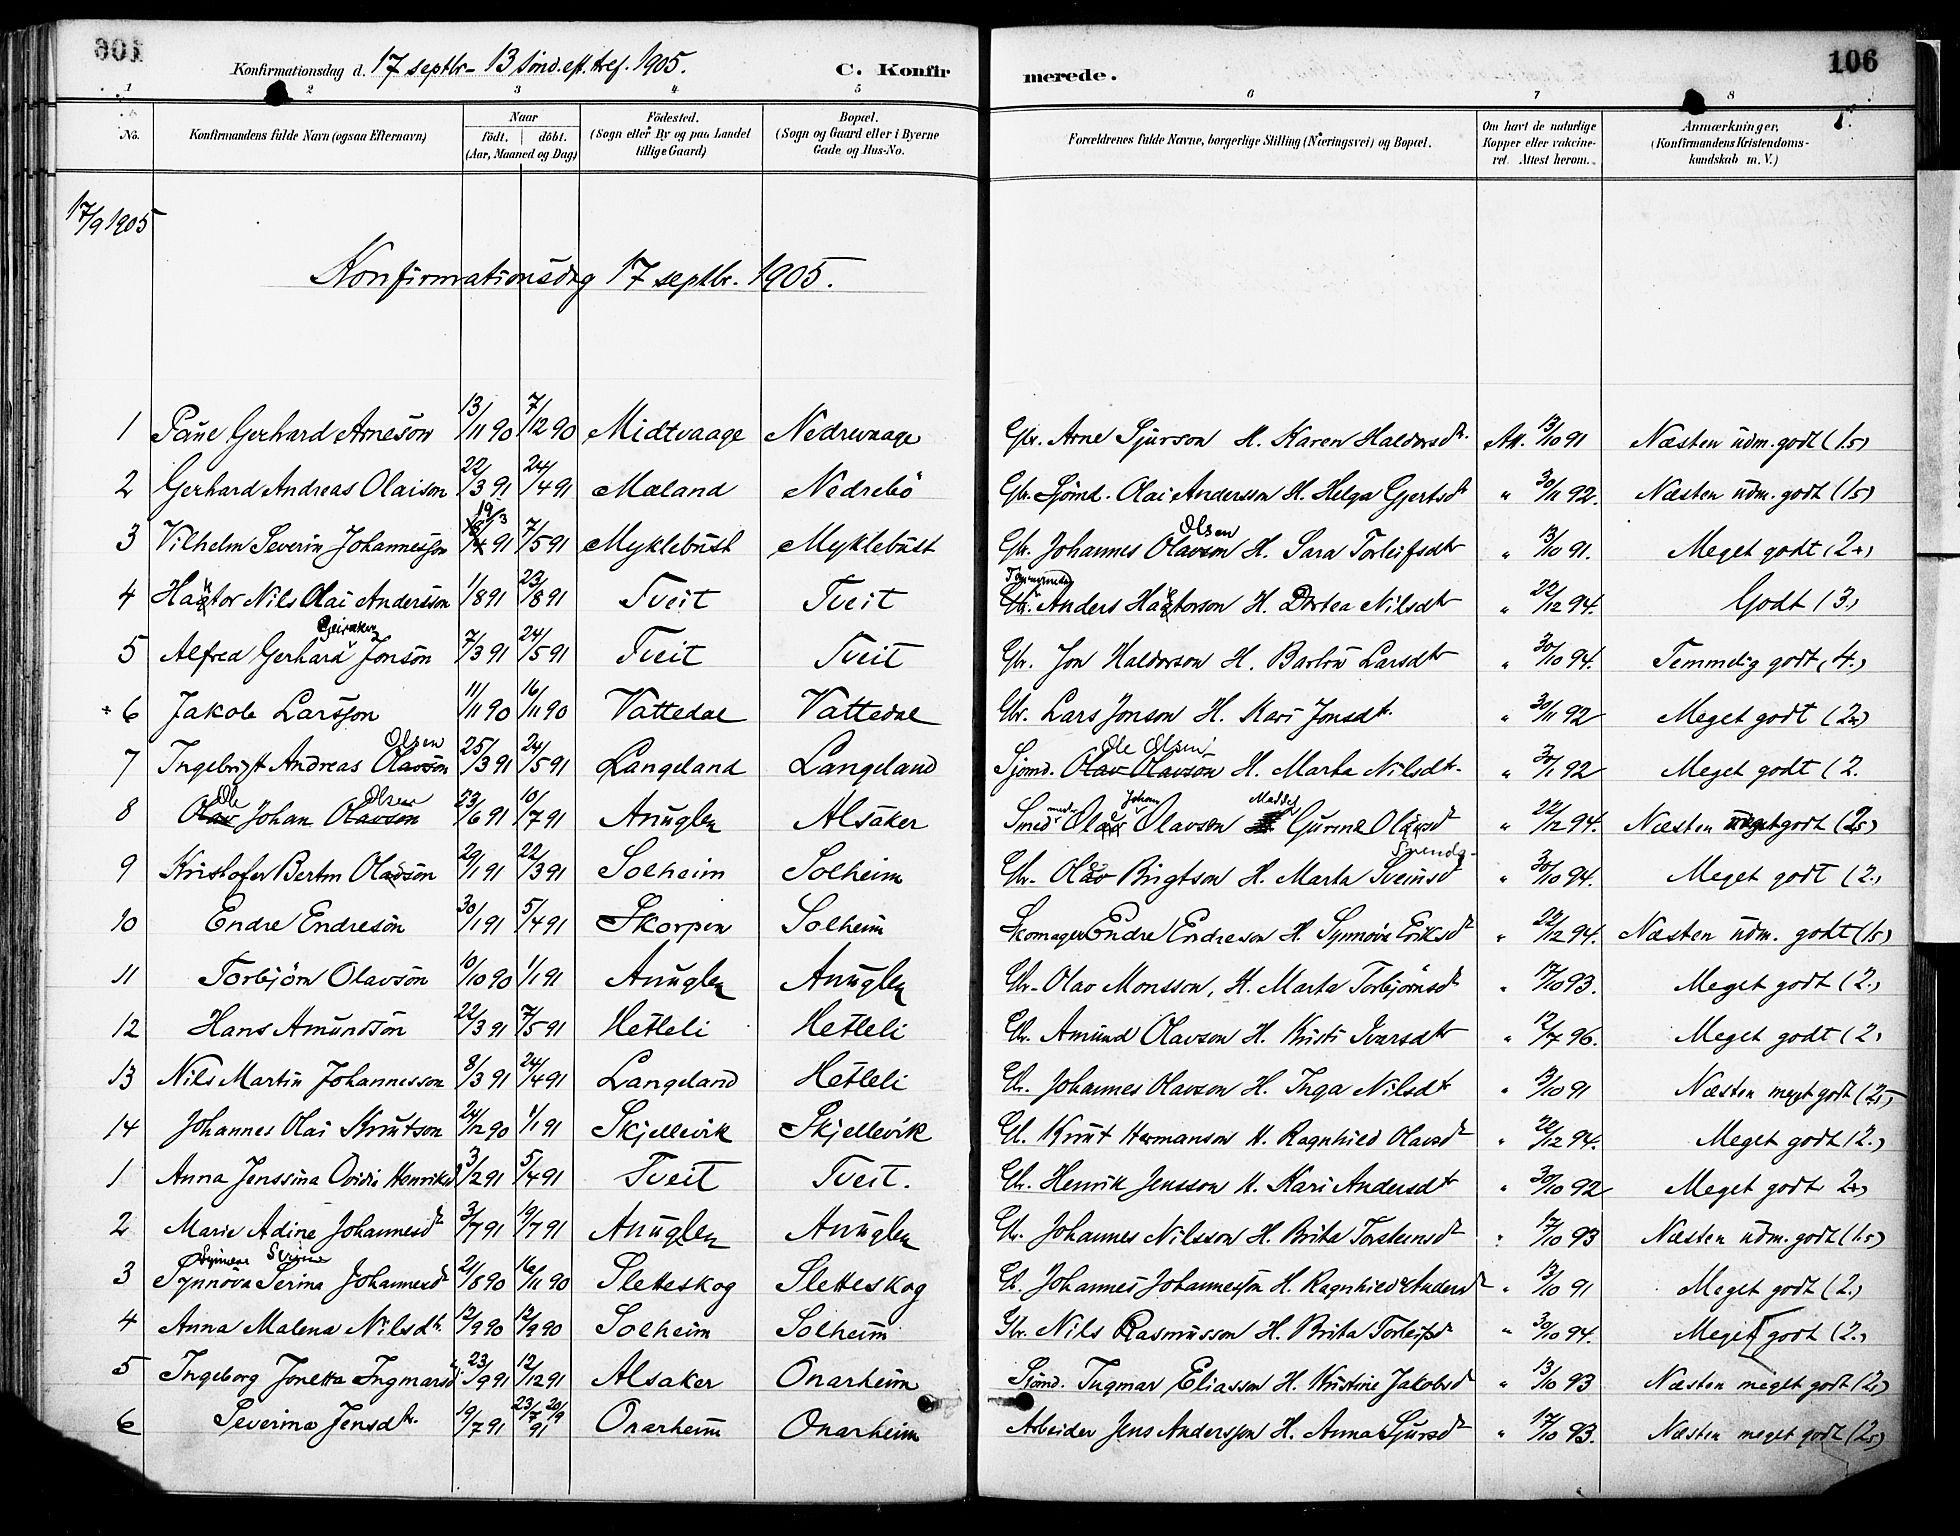 106
Konfirmationsdag d. 17 septbr - 13 sönd. eft. tref. 1905. C. Konfirmerede. 106
1 2 3 4 5 6 7 8
No. Konfirmandens fulde Navn (ogsaa Efternavn) Naar födt. döbt. (Aar, Maaned og Dag) Födested. (Sogn eller By og paa Landet tillige Gaard) Bopæl. (Sogn og Gaard eller i Byerne Gade og Hus-No. Forældrenes fulde Navne, borgerlige Stilling (Næringsvei) og Bopæl. Om havt de naturlige Kopper eller vakcineret. Attest herom. Anmærkninger, (Konfirmandens Kristendomskundskab m. V.)
17/9 1905
Konfirmationsdag 17 septbr. 1905.
1 Gerhard Arneson 13/11 90 7/12 90 Midtvaage Nedrevaage Gbr. Arne Sjurson H. Karen Haldorsdtr. Att. 13/10 91 Næsten udm. godt (1.5)
2 Gerhard Andreas Olaison 22/3 91 24/4 91 Mæland Nedrebö Gbr. Sjömd. Olai Andersson H. Helga Gjertsdt " 30/11 92. Næsten udm. godt (1.5)
3 Vilhelm Severin Johannesson 19/3 91 7/5 91 Myklebust Myklebust Gbr. Johannes Olavson Olsen H. Sara Torleifsdtr " 13/10 91. Meget godt (2.)
4 Haktor Nils Olai Andersson 1/8 91 23/8 91 Tveit Tveit Anders Haktorson H. Dortea Nilsdtr " 22/12 94. Godt (3.)
5 Alfred Gerhard Jonson 7/3 91 24/5 91 Tveit Tveit Gbr. Jon Haldorson H. Barbru Larsdtr " 30/10 94. Temmelig godt (4.)
6 Jakob Larsson 11/11 90 16/11 90 Vattedal Vattedal Gbr. Lars Jonson H. Kari Jonsdtr. " 30/11 92 Meget godt (2.)
7 Ingebrigt Andreas Olavson Olsen 25/3 91 24/5 91 Langeland Langeland Sjömd. Olav Olavson Ole Olsen H. Marta Nilsdtr. " 30/11 92 Meget godt (2.
8 Olav Ole Johan Olavson Olsen 23/6 91 10/7 91 Anuglen Alsaker Smed Olav Johan Olavson Gurine Olavsd " 22/12 94. Næsten meget godt (2.5)
9 Kristofer Bertin Olavson 29/1 91 22/3 91 Solheim Solheim Gbr. Olav Brigtson H. Marta Sveinsd " 30/10 94. Meget godt (2.)
10 Endre Endreson 30/1 91 5/4 91 Skorpen Solheim Skomager Endre Endreson H. Synnöva Eriksdt " 22/12 94. Næsten udm. godt (1.5)
11 Torbjörn Olavson 10/10 90 1/1 91 Anuglen Anuglen Gbr. Olav Monsson, H. Marta Torbjörnsdt " 17/10 93. Meget godt (2.)
12 Hans Amundson 22/3 91 7/5 91 Hetleli Hetleli Gbr. Amund Olavson H. Kristi Ivarsdtr " 12/7 96. Meget godt (2.
13 Nils Martin Johannesson 8/3 91 24/4 91 Langeland Hetleli Gbr. Johannes Olavson H. Inga Nilsdt " 13/10 91 Næsten meget godt (2.5)
14 Johannes Olai Knutson 24/12 90 1/1 91 Skjellevik Skjellevik Gbr. Knut Hermanson H. Ragnhild Olavsdt " 22/12 94. Meget godt (2.)
1 Anna Jenssina Ovidie Henriksd 3/2 91 5/4 91 Tveit Tveit. Gbr. Henrik Jensson H. Kari Andersdt " 30/10 92 Meget godt 2.)
2 Marie Adine Johannesdt 3/7 91 19/7 91 Anuglen Anuglen Gbr. Johannes Nilsson H. Brita Torsteinsdt " 17/10 93 Næsten udm. godt (1.5)
3 Synnöva Serina Johannesdt 21/8 90 16/11 90 Sletteskog Sletteskog Gbr. Johannes Johannesson H. Ragnhild Andersdt " 13/10 91 Meget godt (2.)
4 Anna Malena Nilsdtr. 12/9 90 12/9 90 Solheim Solheim Gbr. Nils Rasmusson H. Brita Torleifsdt " 30/10 94. Meget godt (2.)
5 Ingeborg Jonetta Ingmarsd 23/9 91 12/12 91 Alsaker Onarheim Sjömd. Ingmar Eliasson H. Kristine Jakobsd " 13/10 93 Næsten meget godt (2.5)
6 Severina Jensdtr. 19/7 91 Onarheim Onarheim Arbeider Jens Andersson H. Anna Sjursdt " 17/10 93. Næsten meget godt (2.5)